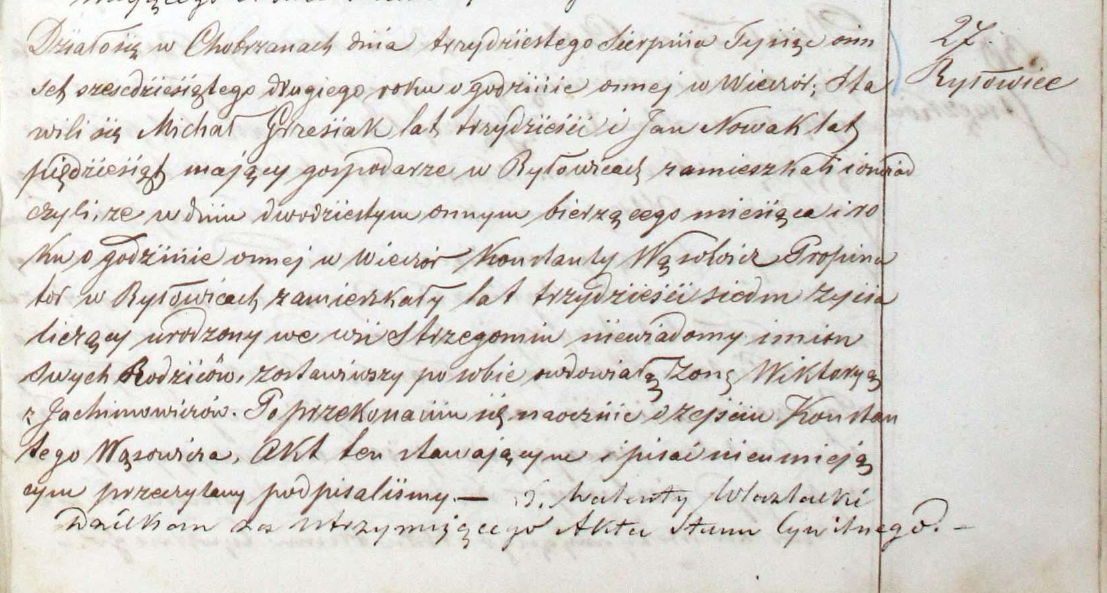 27.
Rytowice
Działo się w Chobrzanach dnia trzydziestego Sierpnia Tysiąc osm
set sześdziesiątego drugiego roku o godzinie osmej w Wieczór, Sta
wili się Michał Grześiak lat trzydzieści i Jan Nowak lat
pięździesiąt mający gospodarze w Rytowicach zamieszkali i oświad
czyli, że w dniu dwodziestym osmym bierzącego miesiąca i ro
ku o godzinie osmej w wieczór Konstanty Wąsowicz Propina
tor w Rytowicach zamieszkały lat trzydzieści siedm życia
liczący urodzony we wsi Strzegomiu niewiadomy imion
swych Rodziców, zostawiwszy po sobie owdowiałą żonę Wiktoryą
z Jachimowiczów. Po przekonaniu się naocznie o zejściu Konstan
tego Wąsowicza, Akt ten stawającym i pisać nieumieją
cym przeczytany podpisaliśmy. — X. Walenty
Dziekan za Utrzymującego Akta Stanu Cywilnego. —